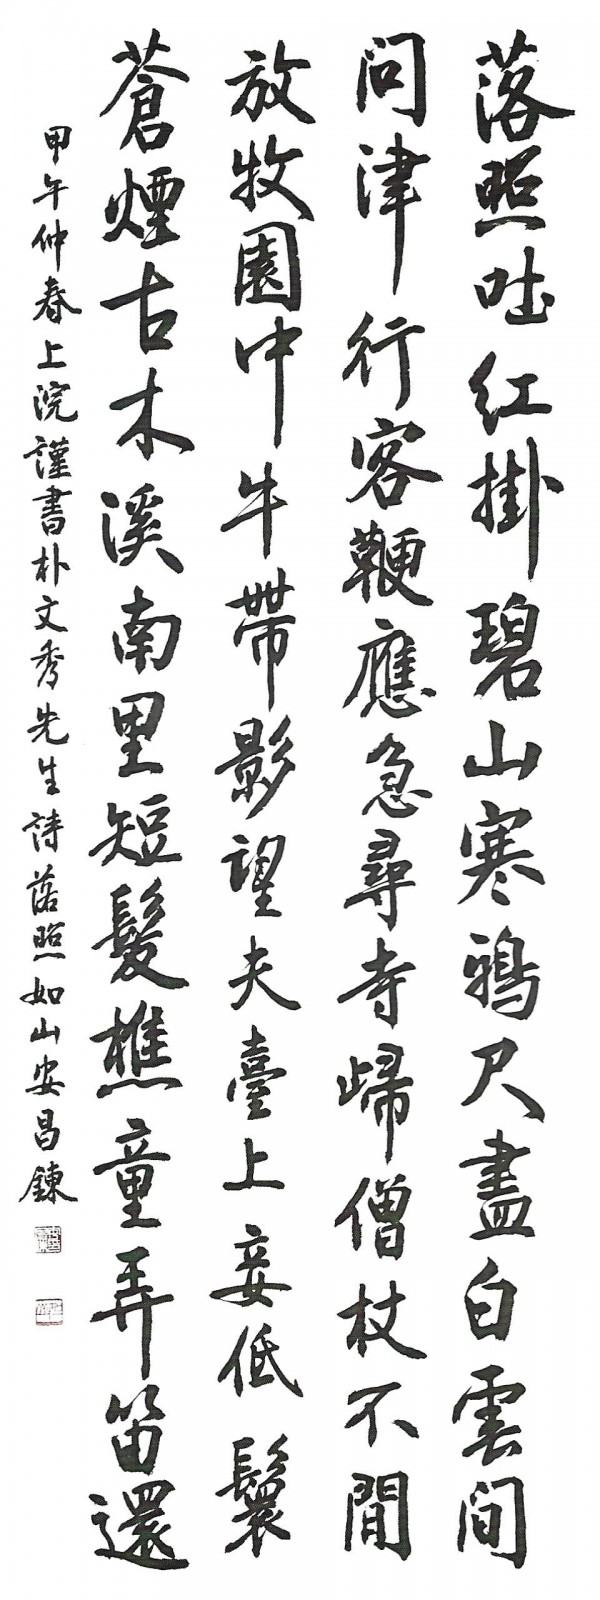 落照吐紅掛碧山寒鴉尺盡白雲間
問津行客鞭應急尋寺歸僧杖不閒
放牧園中牛帶影望夫臺上妾低鬟
蒼煙古木溪南里短髮樵童弄笛還
甲午仲春上浣謹書朴文秀先生詩落照如山安昌鍊